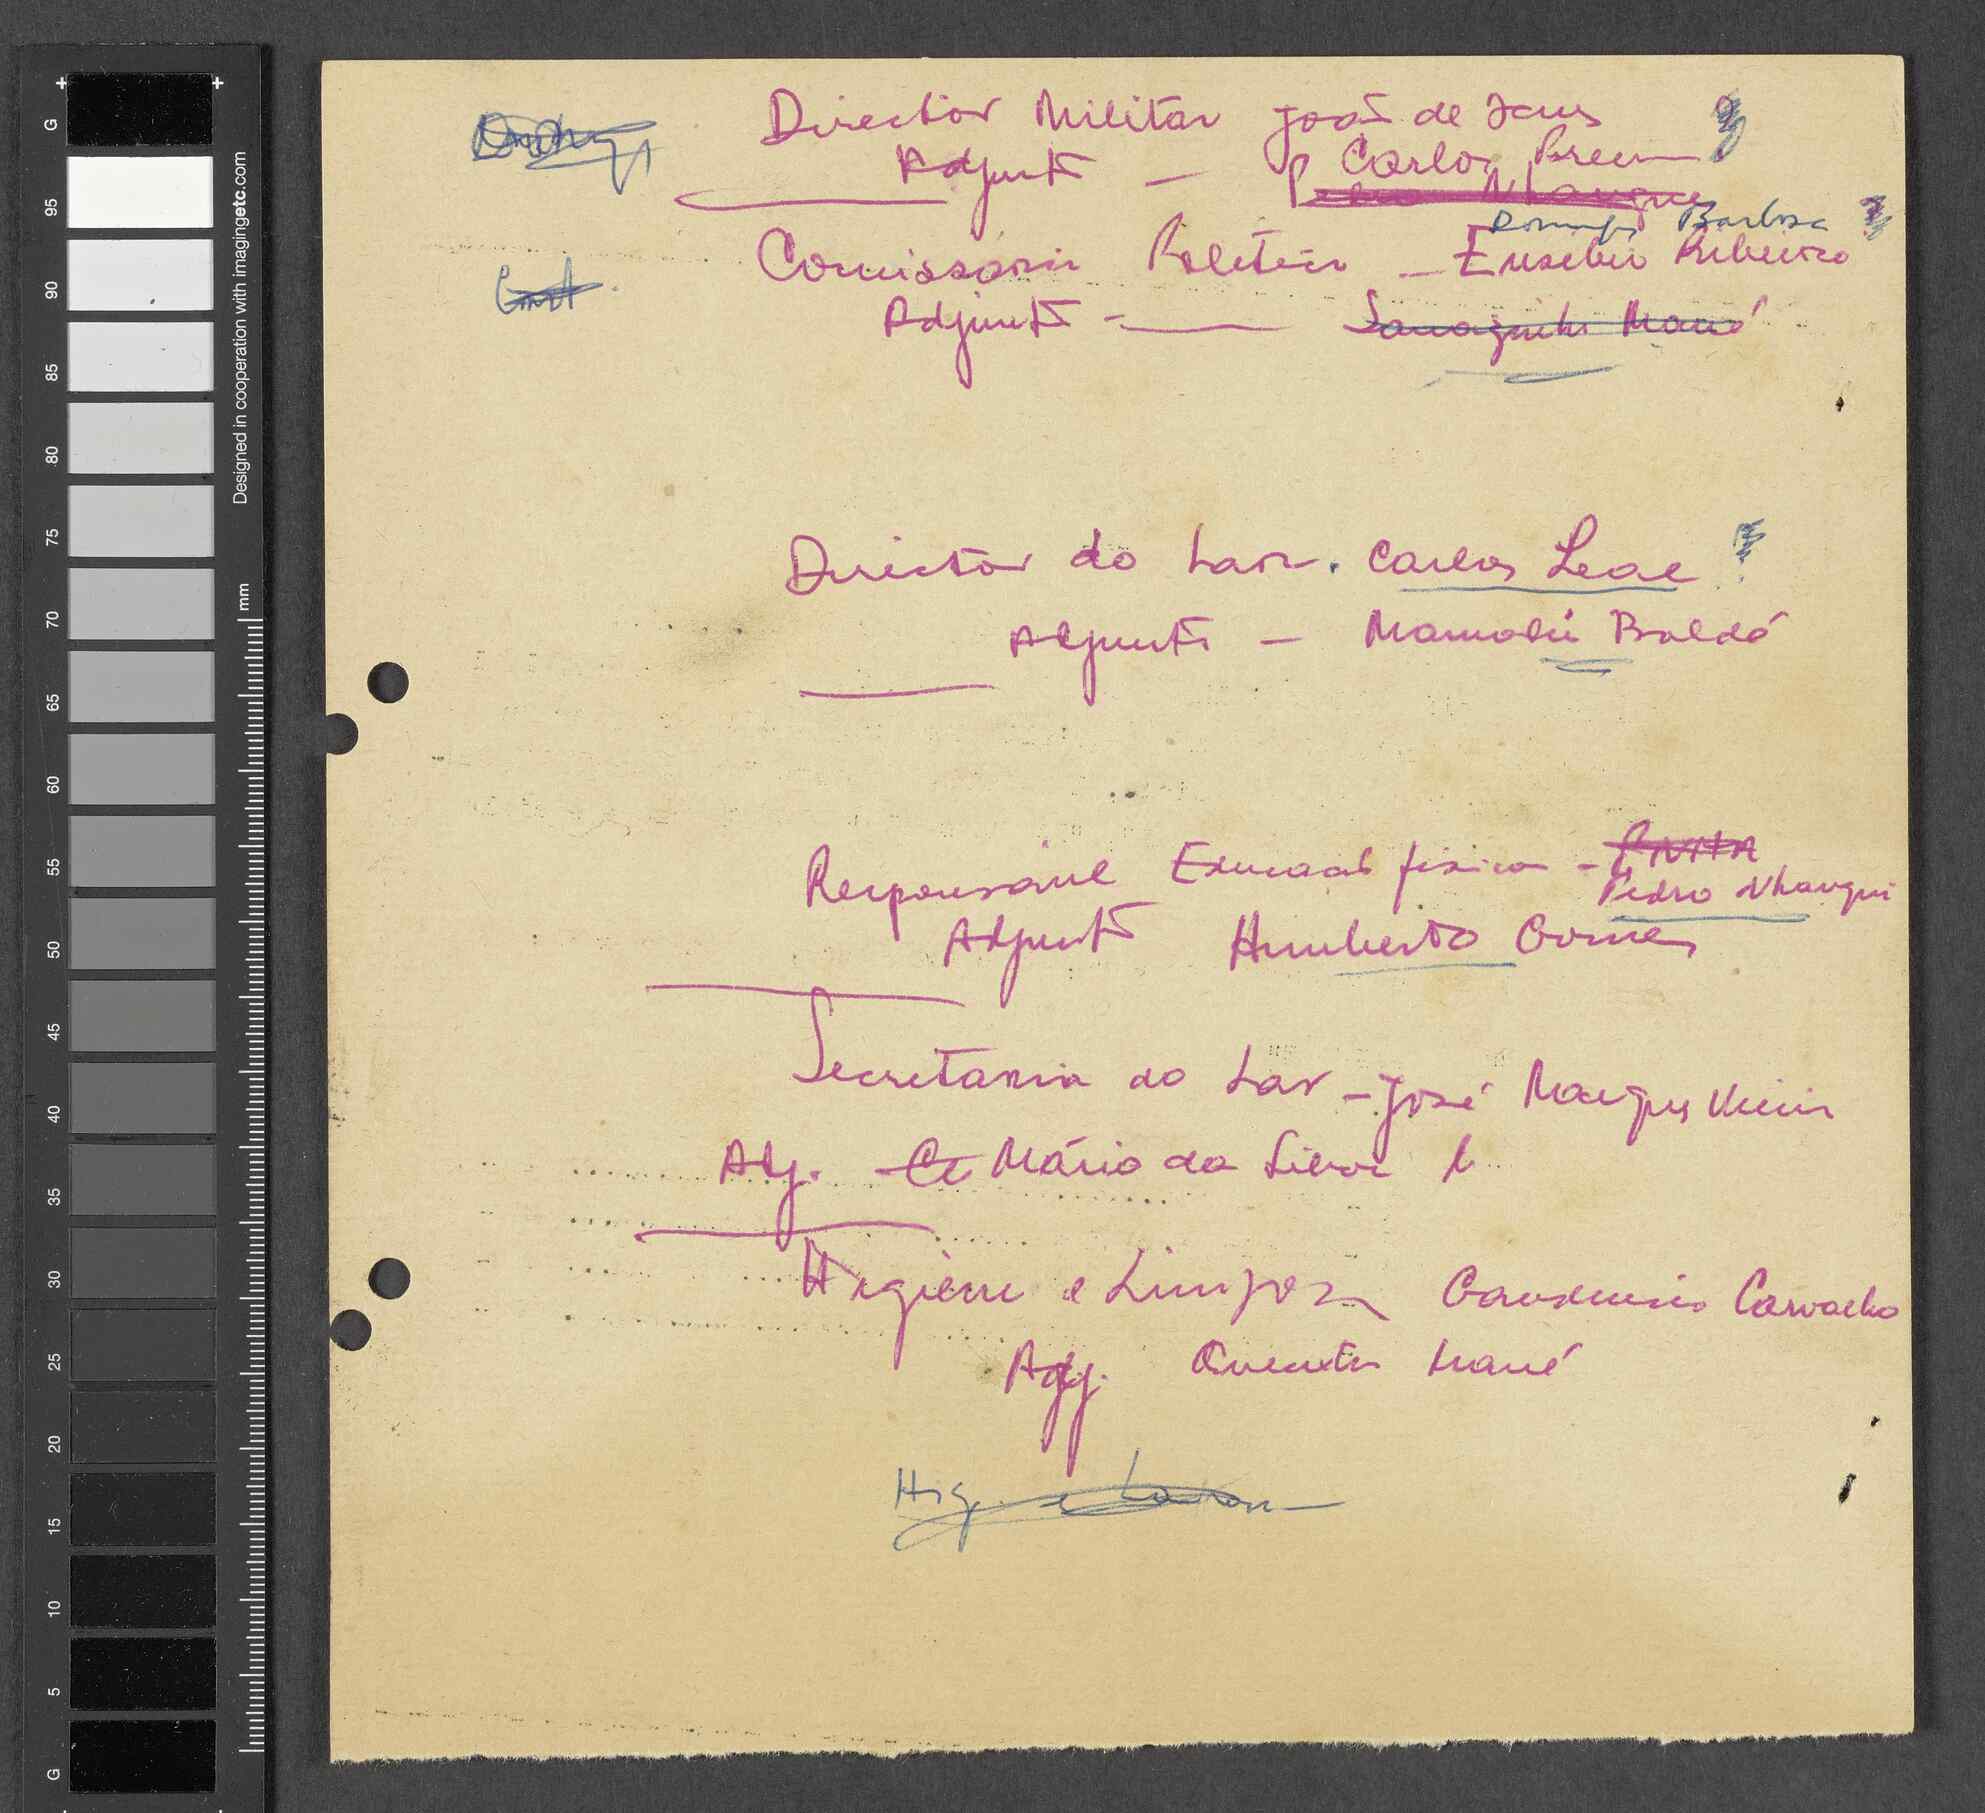 Director Militar João de Jesus
Adjunto — Carlos
Domingos Barbosa
Comissário Politico — Eusebio Ribeiro
Adjunto — Mané
Director do Lar. Carlos Leal
Adjunto — Mamadú Baldé
Responsável Educação fisica —
Pedro Nhangui
Adjunto Humberto Gomes
Secretaria do Lar — José Marques Vieira
Adj. Mário da Silva
Higiene e Limpeza Gaudencio Carvalho
Adj. Quemta Mané
Hig. e
G
95
90
85
80
75
70
65
60
55
50
45
40
35
30
25
20
15
10
5
G
mm
Designed in cooperation with imagingetc.com